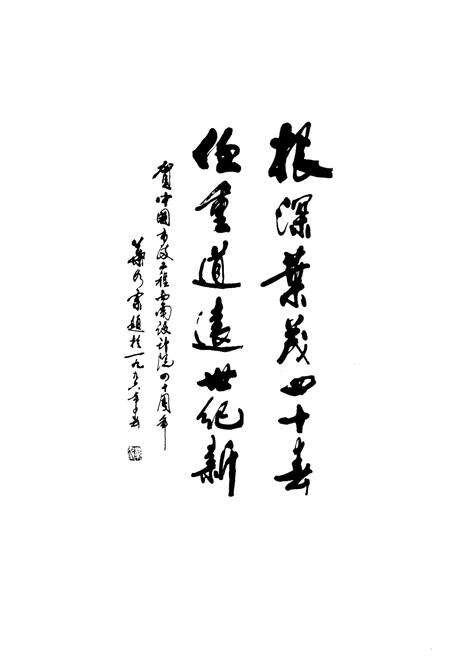 根深葉茂四十春
任重道遠世紀新
賀中國市政工程西南設計院四十周年
題於一九九六年